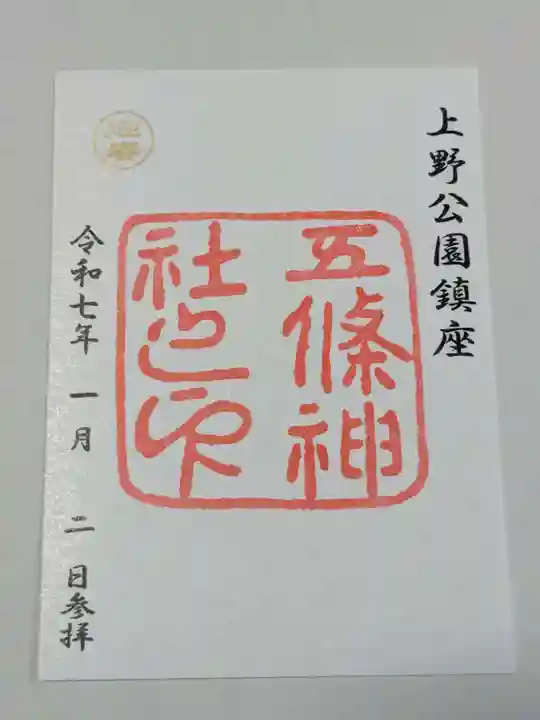 上野公園鎮座
五條神
社之印
迎春
令和七年 一月 二 日参拝